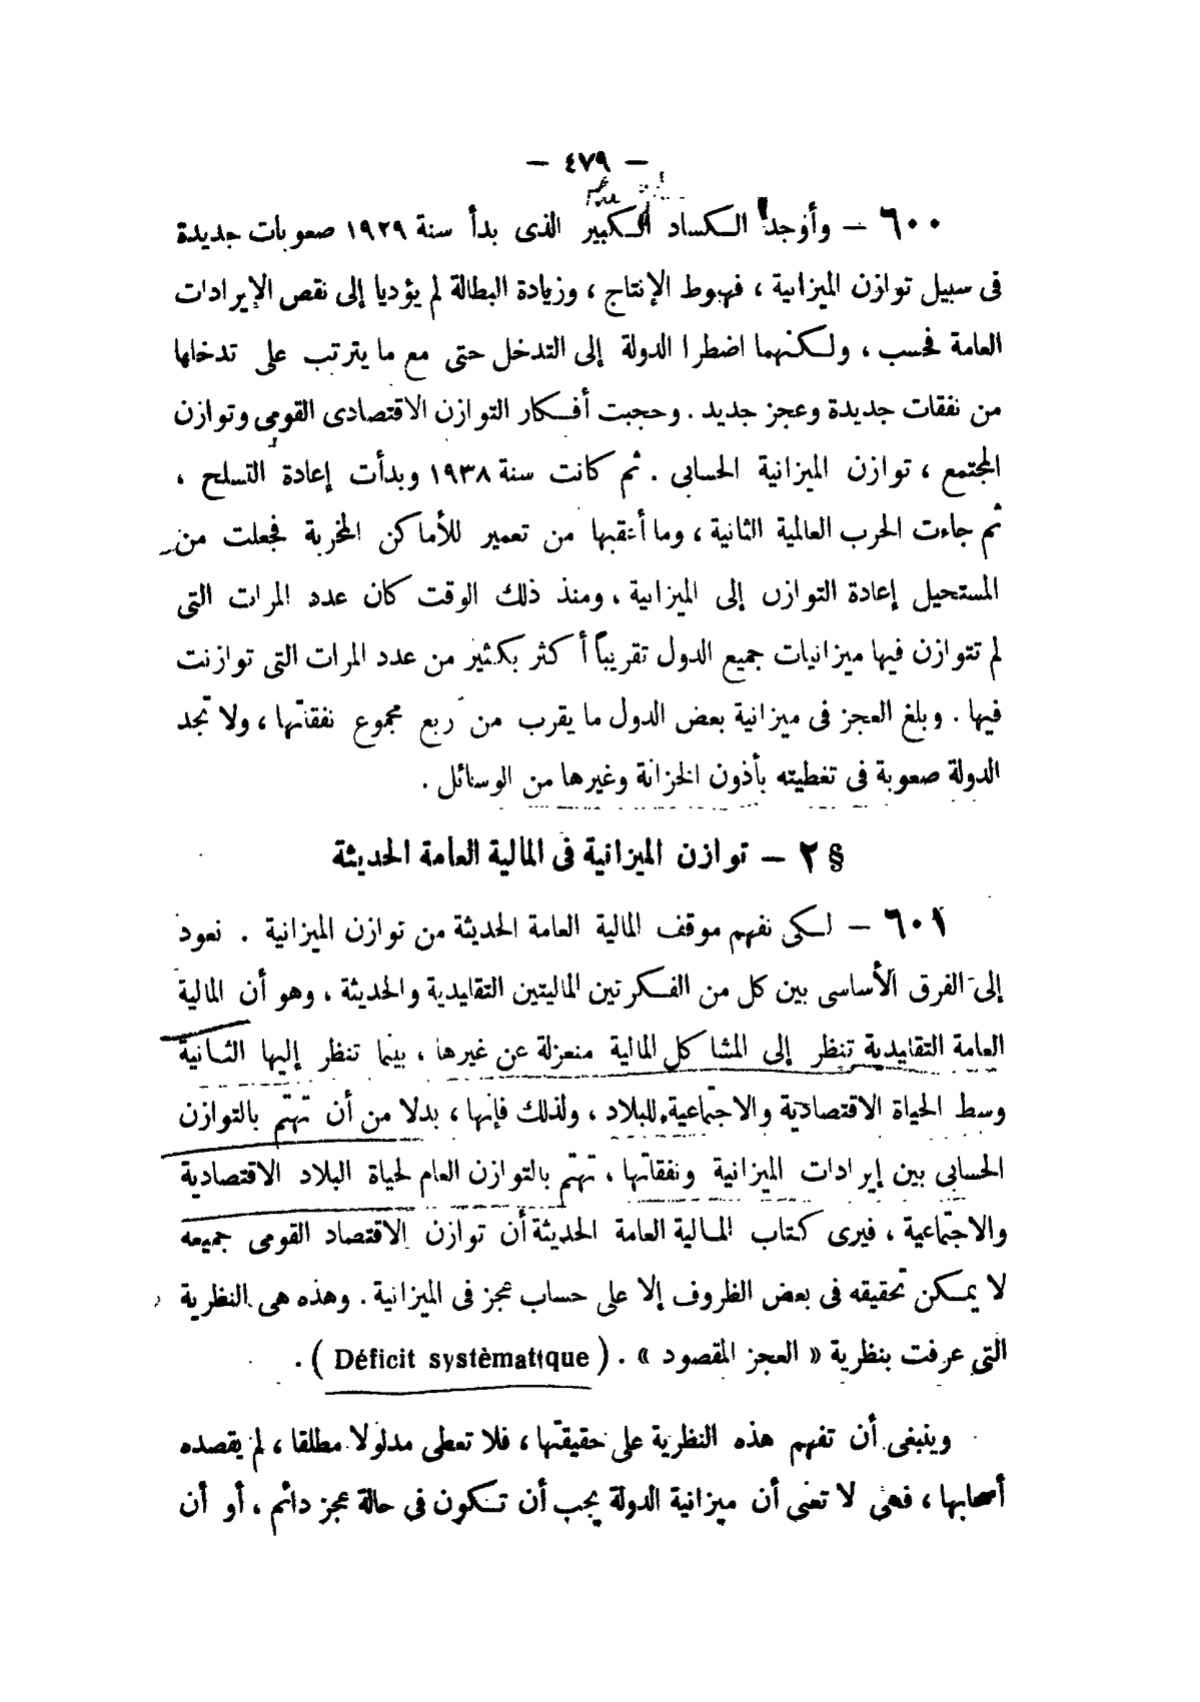 — ٤٧٩ —
٦٠٠ — وأوجد الكساد الكبير الذى بدأ سنة ١٩٢٩ صعوبات جديدة
فى سبيل توازن الميزانية ، فهبوط الإنتاج ، وزيادة البطالة لم يؤديا إلى نقص الإيرادات
العامة فحسب ، ولكنهما اضطرا الدولة إلى التدخل حتى مع ما يترتب على تدخلها
من نفقات جديدة وعجز جديد . وحجبت أفكار التوازن الاقتصادى القومى وتوازن
المجتمع ، توازن الميزانية الحسابى . ثم كانت سنة ١٩٣٨ وبدأت إعادة التسلح ،
ثم جاءت الحرب العالمية الثانية ، وما أعقبها من تعمير للأماكن المخربة فجعلت من
المستحيل إعادة التوازن إلى الميزانية ، ومنذ ذلك الوقت كان عدد المرات التى
لم تتوازن فيها ميزانيات جميع الدول تقريباً أكثر بكثير من عدد المرات التى توازنت
فيها . وبلغ العجز فى ميزانية بعض الدول ما يقرب من ربع مجموع نفقاتها ، ولا تجد
الدولة صعوبة فى تغطيته بأذون الخزانة وغيرها من الوسائل .
§ ٢ — توازن الميزانية فى المالية العامة الحديثة
٦٠١ — لكى نفهم موقف المالية العامة الحديثة من توازن الميزانية . نعود
إلى الفرق الأساسى بين كل من الفكرتين الماليتين التقليدية والحديثة ، وهو أن المالية
العامة التقليدية تنظر إلى المشاكل المالية منعزلة عن غيرها ، بينما تنظر إليها الثانية
وسط الحياة الاقتصادية والاجتماعية للبلاد ، ولذلك فإنها ، بدلا من أن تهتم بالتوازن
الحسابى بين إيرادات الميزانية ونفقاتها ، تهتم بالتوازن العام لحياة البلاد الاقتصادية
والاجتماعية ، فيرى كتاب المالية العامة الحديثة أن توازن الاقتصاد القومى جميعه
لا يمكن تحقيقه فى بعض الظروف إلا على حساب عجز فى الميزانية . وهذه هى النظرية
التى عرفت بنظرية « العجز المقصود » . ( Déficit systèmatique ) .
وينبغى أن تفهم هذه النظرية على حقيقتها ، فلا تعطى مدلولا مطلقا ، لم يقصده
أصحابها ، فهى لا تعنى أن ميزانية الدولة يجب أن تكون فى حالة عجز دائم ، أو أن